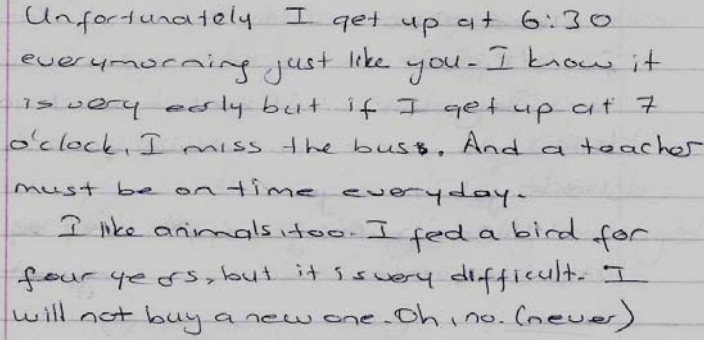 Unfortunately I get up at 6:30
everymorning just like you. I know it
is very early but if I get up at 7
o'clock, I miss the bus. And a teacher
must be on time everyday.
I like animals, too. I fed a bird for
four years, but it is very difficult. I
will not buy a new one. Oh, no. (never)